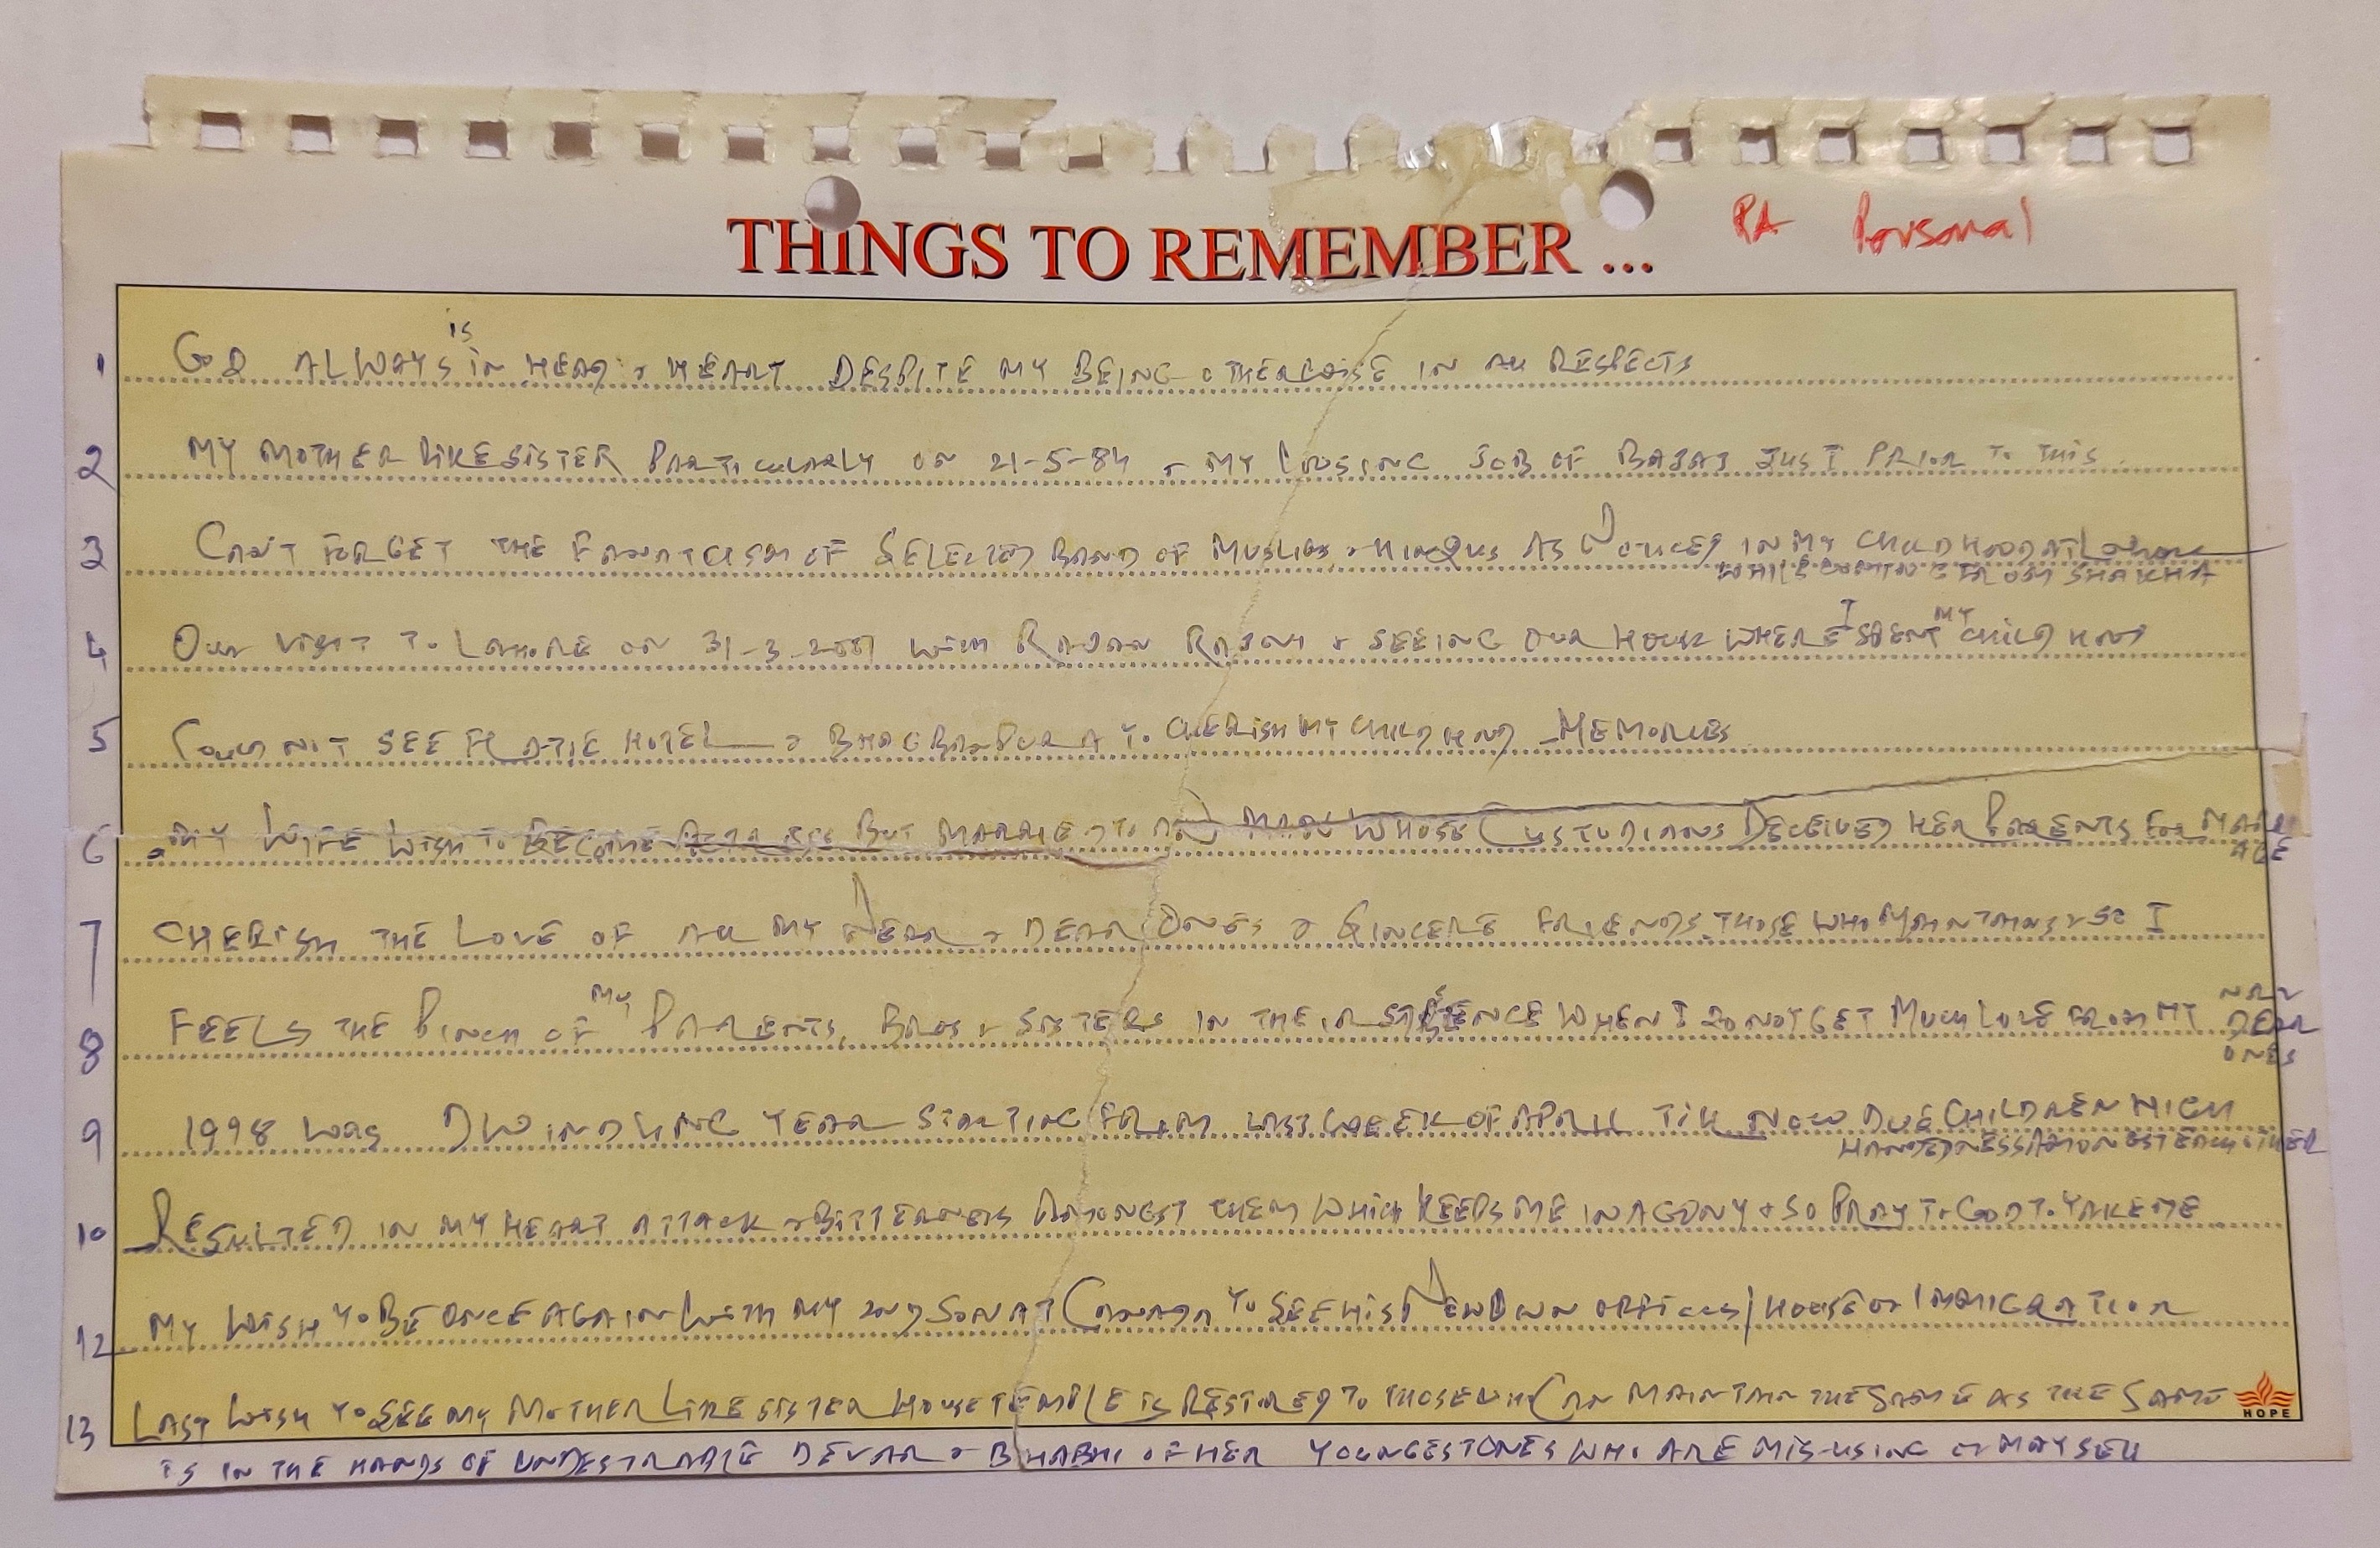 THINGS TO REMEMBER ...
PA Personal
1 GOD ALWAYS is IN HEAD & HEART DESPITE MY BEING OTHERWISE IN ALL RESPECTS
2 MY MOTHER LIKE SISTER PARTICULARLY ON 21-5-84 & MY LOOSING JOB OF BAJAJ JUST PRIOR TO THIS
3 CAN'T FORGET THE FANATCISM OF SELECTED BAND OF MUSLIMS & HINDUS AS NOTICED IN MY CHILDHOOD AT LAHORE
WHILE COMING FROM SHAKHA
4 OUR VISIT TO LAHORE ON 31-3-2001 WITH RAJAN RAJNI & SEEING OUR HOUSE WHERE I SPENT MY CHILD HOOD
5 COULD NOT SEE FLATTIE HOTEL & BHAGBANPURA TO CHERISH MY CHILD HOOD MEMORIES
6 MY WIFE WISH TO BECOME BUT MARRIED TO A MAN WHOSE CUSTODIANS DECEIVED HER PARENTS FOR MARRI
AGE
7 CHERISH THE LOVE OF ALL MY NEAR & DEAR ONES & SINCERE FRIENDS THOSE WHO MAINTAINS & SO I
8 FEELS THE PINCH OF MY PARENTS, BROS & SISTERS IN THEIR WHEN I DO NOT GET MUCH LOVE FROM MY
DEAR
ONES
9 1998 WAS DWINDLING YEAR STARTING FROM LAST WEEK OF APRIL TILL NOW DUE CHILDREN HIGH
HANDEDNESS AMONGST EACH OTHER
10 RESULTED IN MY HEART ATTACK & BITTERNESS AMONGST THEM WHICH KEEPS ME IN AGONY & SO PRAY TO GOD TO TAKE ME
12 MY WISH TO BE ONCE AGAIN WITH MY 2ND SON AT CANADA TO SEE HIS NEW OWN OFFICES / HOUSE OF IMMIGRATION
13 LAST WISH TO SEE MY MOTHER LIKE SISTER HOUSE TEMPLE IS RESTORED TO THOSE WHO CAN MAINTAIN THE SAME AS THE SAME
HOPE
IS IN THE HANDS OF UNDESIRABLE DEVAR & BHABHI OF HER YOUNGEST ONES WHO ARE MIS-USING OR MAY SELL